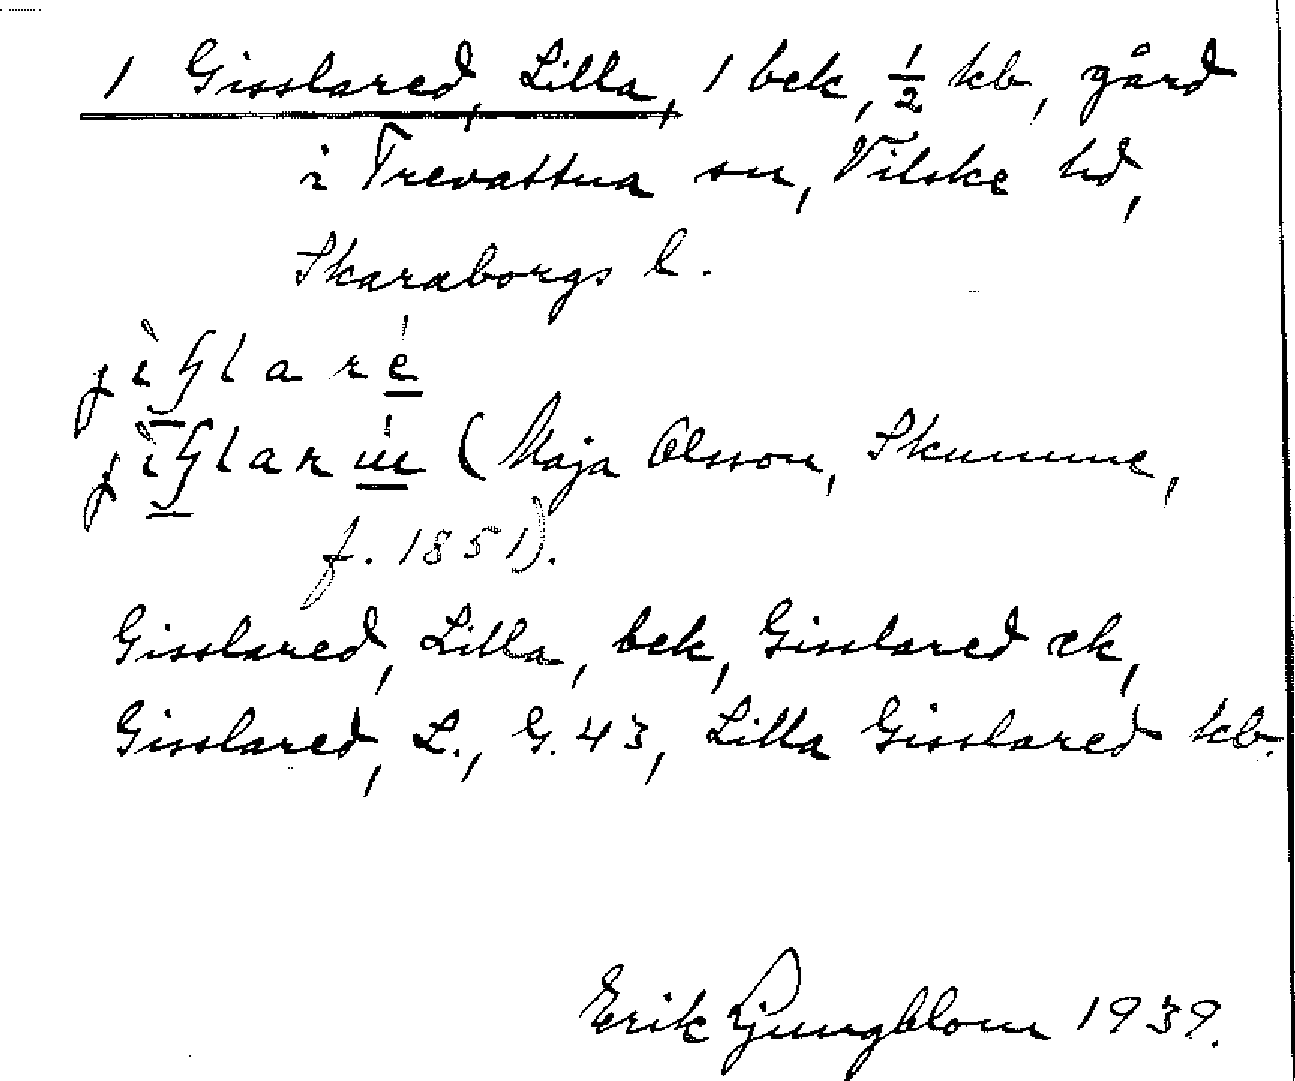 1 Gisslared, Lilla, 1 bek, ½ kb, gård
i Trevattna sn, Vilske hd,
Skaraborgs l.
(Maja Olsson, Skumme,
f. 1851).
Gisslared, Lilla, bek, Gisslared ek,
Gisslared, L., G. 43, Lilla Gisslared kb.
Erik Ljungblom 1939.